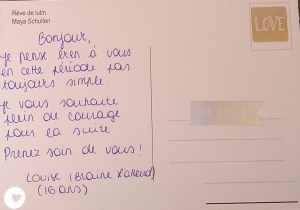 Rêve de lutin
Maya Schuiten
LOVE
Bonjour,
je pense bien à vous
en cette période pas
toujours simple.
Je vous souhaite
plein de courage
pour la suite
Prenez soin de vous !
Louise (Braine l'alleud)
(16 ans)